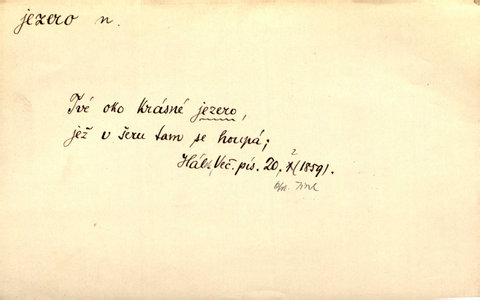 jezero n.
Tvé oko krásné jezero,
jež v šeru tam se houpá;
Hálk, Več. pís. 20, 2 (1859).